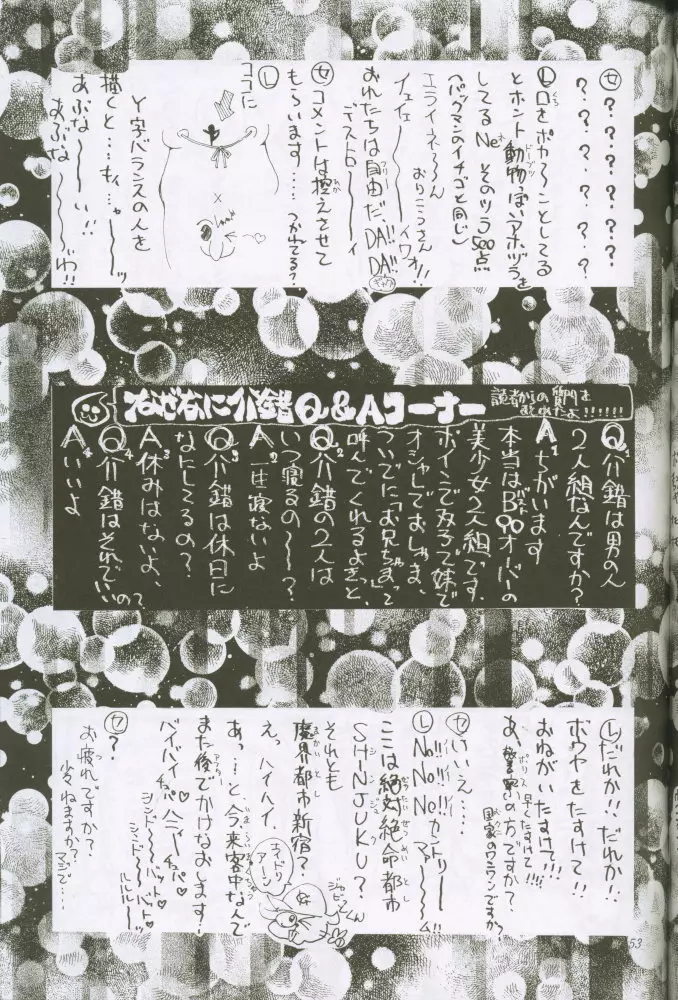 セ ？？？？？？？
？？？？？
L 口をポカ〜〜ことしてる
とホント動物っぽいアホヅラを
してるNe そのツラ500点
パックマンのイチゴと同じ
エライネ〜〜ん
おりこうさん
イェイェーーーイ
イワオ!!
おれたちは自由だ、DA!!DA!!
デストローーイ
セ コメントは控えさせて
もらいます……つかれてる？
L ココに
Y字バランスの人を
描くと…もィ…ャーーーッ
あぶな〜〜い!!
あぶな〜〜〜わ!!
なぜなに介錯Q&Aコーナー
読者からの質問を
Q1 介錯は男の人
2人組なんですか？
A1 ちがいます
本当はB90オーバーの
美少女2人組です。
ボインでメガネで妹で
オシャレでおしゃま、
ついでに「お兄ちゃまって
呼んでくれるよきっと、
Q2 介錯の2人は
いつ寝るの〜〜？
A2 一生寝ないよ
Q3 介錯は休日に
なにしてるの？
A3 休みはないよ、
Q4 介錯はそれでいいの？
A4 いいよ
L だれか!!だれか!!
ボウヤをたすけて!!
おねがいたすけて!!
早くたすけて!!!
あ、警察の方ですか？
国家のワンワンですか？
セ いいえ……
L No!!No!!No!!カントリー
マァーーーム!!
ここは絶対絶命都市
SHINJUKU？
それとも
魔界都市新宿？
えっ、ハイハイ、
あっ…と今、来客中なんで
また後でかけなおします！
バイバイ ハニー♡
シンドーーバット♡
シンドーーバト♡
ルルルー
セ ？
お疲れですか？
少しねますか？
マジで…
エイドリアーン
53